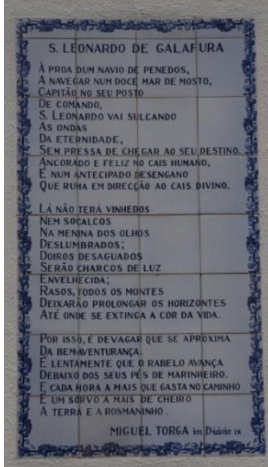 S. LEONARDO DE GALAFURA
À PROA DUM NAVIO DE PENEDOS,
A NAVEGAR NUM DOCE MAR DE MOSTO,
CAPITÃO NO SEU POSTO
DE COMANDO,
S. LEONARDO VAI SULCANDO
AS ONDAS
DA ETERNIDADE,
SEM PRESSA DE CHEGAR AO SEU DESTINO.
ANCORADO E FELIZ NO CAIS HUMANO,
É NUM ANTECIPADO DESENGANO
QUE RUMA EM DIRECÇÃO AO CAIS DIVINO.
LÁ NÃO TERÁ VINHEDOS
NEM SOCALCOS
NA MENINA DOS OLHOS
DESLUMBRADOS;
DOIROS DESAGUADOS
SERÃO CHARCOS DE LUZ
ENVELHECIDA;
RASOS, TODOS OS MONTES
DEIXARÃO PROLONGAR OS HORIZONTES
ATÉ ONDE SE EXTINGA A COR DA VIDA.
POR ISSO, É DEVAGAR QUE SE APROXIMA
DA BEM-AVENTURANÇA.
É LENTAMENTE QUE O RABELO AVANÇA
DEBAIXO DOS SEUS PÉS DE MARINHEIRO.
E CADA HORA A MAIS QUE GASTA NO CAMINHO
É UM SORVO A MAIS DE CHEIRO
A TERRA E A ROSMANINHO.
MIGUEL TORGA in Diário IX